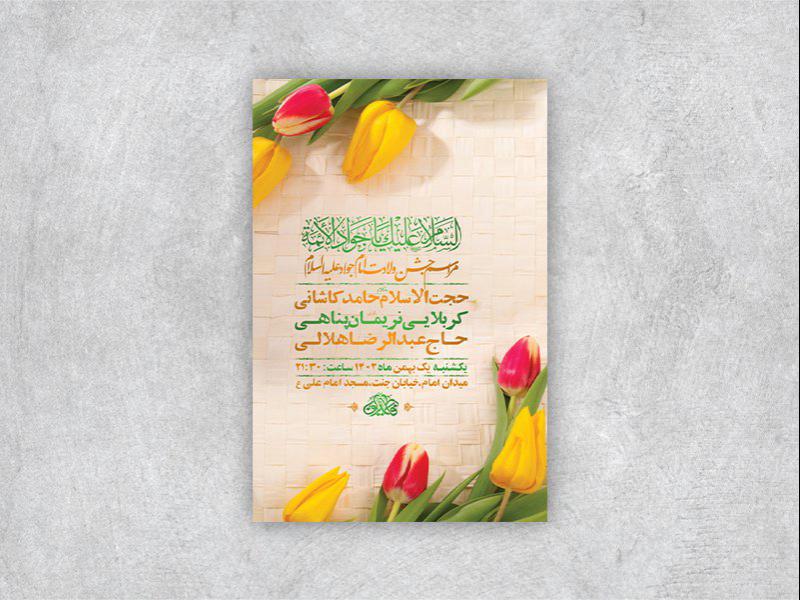 السلام علیک یا جواد الأئمة
مراسم جشن ولادت امام جواد علیه السلام
حجت الاسلام حامد کاشانی
کربلایی نریمان پناهی
حاج عبدالرضا هلالی
یکشنبه یک بهمن ماه ۱۴۰۲ ساعت: ۲۱:۳۰
میدان امام، خیابان جنت، مسجد امام علی ع